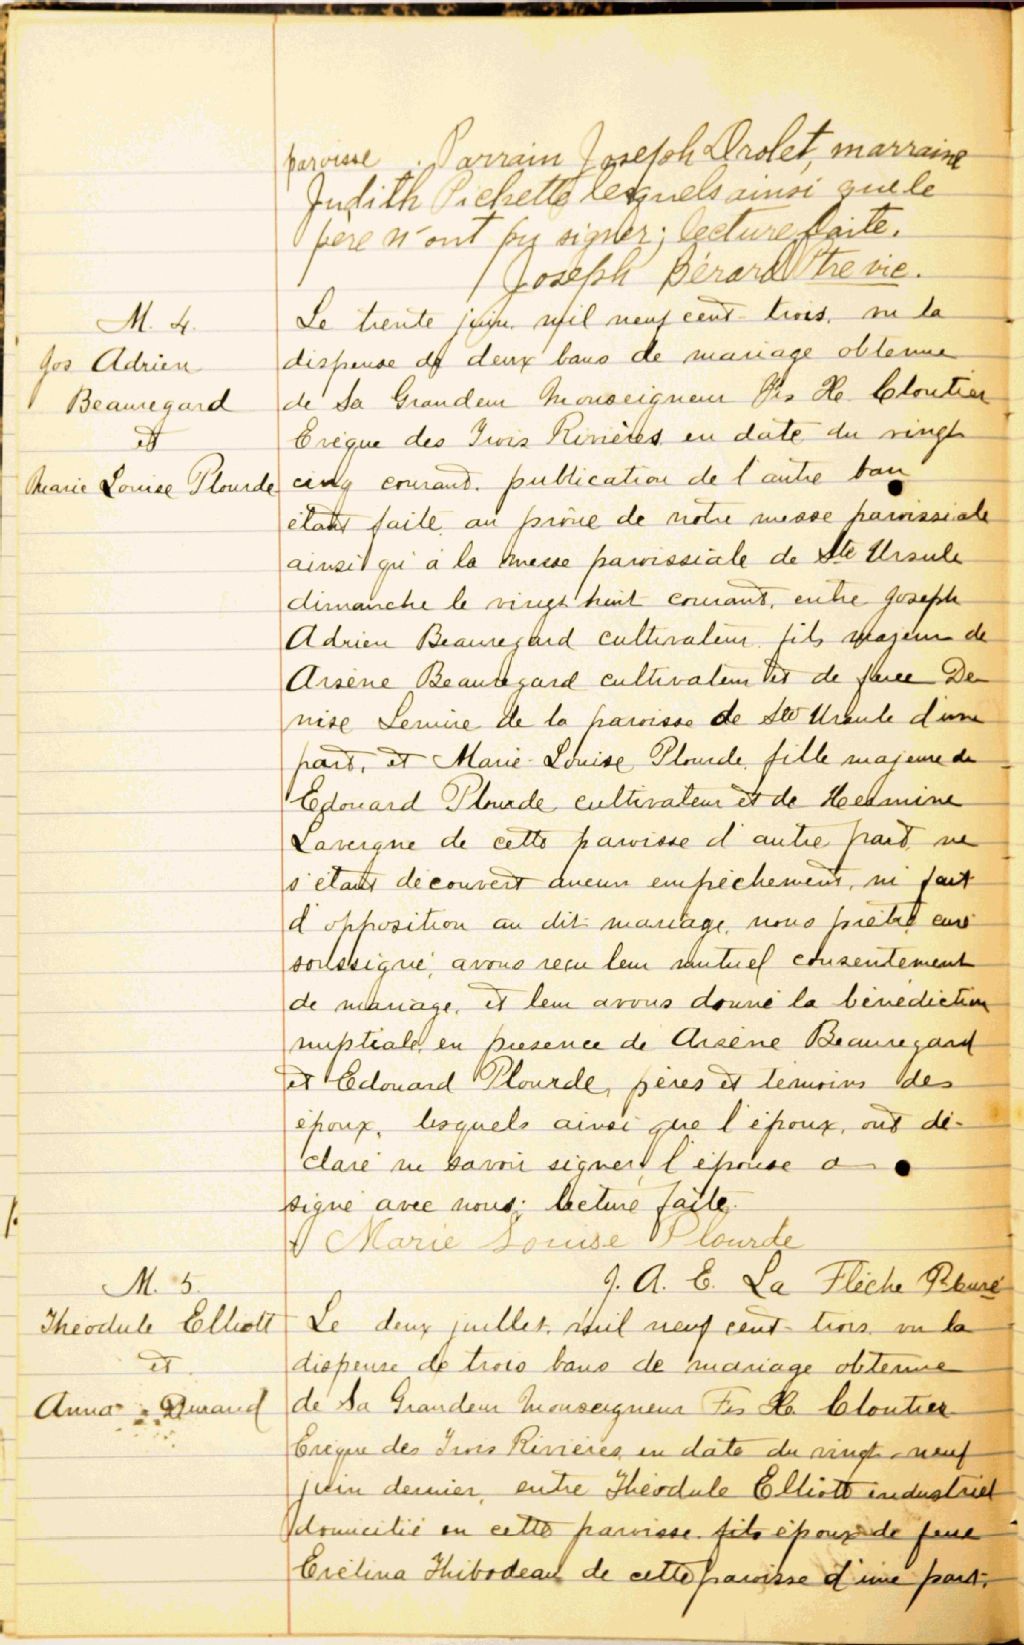 paroisse. Parrain Joseph Drolet, marraine
Judith Pichette lesquels ainsi que le
père n'ont pu signer; lecture faite.
Joseph Bérard Ptre vic.
M. 4.
Jos Adrien
Beauregard
et
Marie Louise Plourde
Le trente juin mil neuf cent trois, vu la
dispense de deux bans de mariage obtenue
de Sa Grandeur Monseigneur Frs X. Cloutier
Evêque des Trois Rivières en date du vingt
cinq courant, publication de l'autre ban
étant faite au prône de notre messe paroissiale
ainsi qu'à la messe paroissiale de Ste Ursule
dimanche le vingt huit courant, entre Joseph
Adrien Beauregard cultivateur fils majeur de
Arsène Beauregard cultivateur et de feue De
nise Lemire de la paroisse de Ste Ursule d'une
part, et Marie Louise Plourde, fille majeure de
Edouard Plourde, cultivateur et de Hermine
Lavergne de cette paroisse d'autre part, ne
s'étant découvert aucun empêchement, ni fait
d'opposition au dit mariage, nous prêtre curé
soussigné, avons reçu leur mutuel consentement
de mariage, et leur avons donné la bénédiction
nuptiale, en présence de Arsène Beauregard
et Edouard Plourde, pères et témoins des
époux, lesquels ainsi que l'époux, ont dé-
claré ne savoir signer, l'épouse a
signé avec nous; lecture faite.
Marie Louise Plourde
J. A. E. La Flèche Ptre curé
M. 5.
Théodule Elliott
et
Anna Durand
Le deux juillet, mil neuf cent trois, vu la
dispense de trois bans de mariage obtenue
de Sa Grandeur Monseigneur Frs X. Cloutier
Evêque des Trois Rivières, en date du vingt-neuf
juin dernier, entre Théodule Elliott industriel
domicilié en cette paroisse fils époux de feue
Evélina Thibodeau de cette paroisse d'une part,